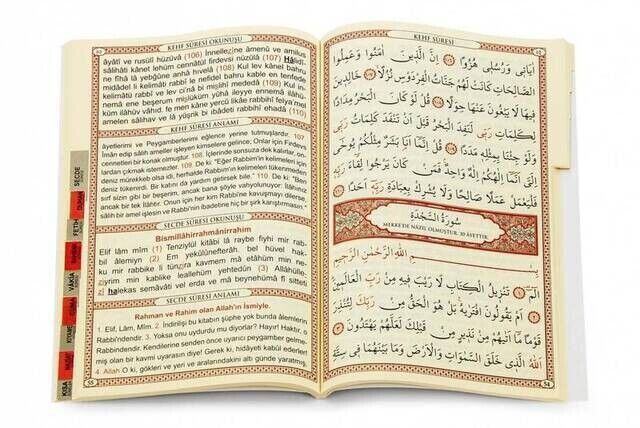 KEHF SÛRESİ OKUNUŞU
âyâtî ve rusulî hüzüvâ (106) İnnellezîne âmenû ve amilus
sâlihâti kânet lehüm cennâtül firdevsi nüzülâ (107) Hâlidî-
ne fîhâ lâ yebğûne anhâ hıvelâ (108) Kul lev kânel bahru
midâdel li kelimâti rabbî le nefidel bahru kable en tenfede
kelimâtü rabbî ve lev ci'nâ bi mislihî mededâ (109) Kul in-
nemâ ene beşerum mislüküm yûhâ ileyye ennemâ ilâhü-
küm ilâhuv vâhid, fe men kâne yercû likâe rabbihî felya'mel
amelen sâlihav ve lâ yüşrik bi ıbâdeti rabbihî ehadâ (110)
KEHF SÛRESİ ANLAMI
âyetlerimi ve Peygamberlerimi eğlence yerine tutmuşlardır. 107
İman edip sâlih ameller işleyen kimselere gelince; Onlar için Firdevs
cennetleri bir konak olmuştur. 108. İçlerinde sonsuza dek kalırlar, on-
dan çıkmak istemezler. 109. De ki: "Eğer Rabbim'in kelimeleri için
deniz mürekkeb olsa idi, herhalde Rabbim'in kelimeleri tükenmeden
deniz tükenirdi. Bir katını da yardım getirsek bile." 110. De ki: "Ben
sırf sizin gibi bir beşerim, ancak bana şöyle vahyolunuyor: İlâhınız
ancak bir tek İlâhtır. Onun için her kim Rabbi'ne kavuşmayı dilerse,
sâlih bir amel işlesin ve Rabbi'nin ibadetine hiç bir şirk karıştırmasın."
SECDE SÛRESİ OKUNUŞU
Bismillâhirrahmânirrahîm
Elif lâm mîm (1) Tenzîylül kitâbi lâ raybe fîyhi mir rab-
bil âlemiyn (2) Em yekûlûnefterâh, bel hüvel hak-
ku mir rabbike li tünzira kavmem mâ etâhüm min ne-
ziyrim min kablike leallehüm yehtedûn (3) Allâhülle-
zî halekas semâvâti vel erda ve mâ beynehümâ fî sitteti
SECDE SÛRESİ ANLAMI
Rahman ve Rahim olan Allah'ın İsmiyle.
1. Elif, Lâm, Mîm. 2. İndirilişi bu kitabın şüphe yok bunda âlemlerin
Rabbi'ndendir. 3. Yoksa onu uydurdu mu diyorlar? Hayır! Haktır, o
Rabbi'ndendir. Kendilerine senden önce uyarıcı peygamber gelme-
miş olan bir kavmi uyarasın diye! Gerek ki, hidâyeti kabul ederler!
4. Allah O ki, gökleri ve yeri ve aralarındakini altı günde yaratmış,
SECDE
DUHAN
FETİH
VÂKIA
KIYAMET
KISA
KEHF SÛRESİ
اٰيَاتٖي وَرُسُلٖي هُزُوًا ﴿١٠٦﴾ اِنَّ الَّذٖينَ اٰمَنُوا وَعَمِلُوا
الصَّالِحَاتِ كَانَتْ لَهُمْ جَنَّاتُ الْفِرْدَوْسِ نُزُلًا ﴿١٠٧﴾ خَالِدٖينَ
فٖيهَا لَا يَبْغُونَ عَنْهَا حِوَلًا ﴿١٠٨﴾ قُلْ لَوْ كَانَ الْبَحْرُ مِدَادًا
لِكَلِمَاتِ رَبّٖي لَنَفِدَ الْبَحْرُ قَبْلَ اَنْ تَنْفَدَ كَلِمَاتُ رَبّٖي
وَلَوْ جِئْنَا بِمِثْلِهٖ مَدَدًا ﴿١٠٩﴾ قُلْ اِنَّمَا اَنَا بَشَرٌ مِثْلُكُمْ يُوحٰى
اِلَيَّ اَنَّمَا اِلٰهُكُمْ اِلٰهٌ وَاحِدٌ فَمَنْ كَانَ يَرْجُوا لِقَاءَ رَبِّهٖ
فَلْيَعْمَلْ عَمَلًا صَالِحًا وَلَا يُشْرِكْ بِعِبَادَةِ رَبِّهٖ اَحَدًا ﴿١١٠﴾
سُورَةُ السَّجْدَةِ
MEKKE'DE NÂZİL OLMUŞTUR. 30 ÂYETTİR.
بِسْمِ اللّٰهِ الرَّحْمٰنِ الرَّحٖيمِ
الٓمٓ ﴿١﴾ تَنْزٖيلُ الْكِتَابِ لَا رَيْبَ فٖيهِ مِنْ رَبِّ الْعَالَمٖينَ
﴿٢﴾ اَمْ يَقُولُونَ افْتَرٰيهُ بَلْ هُوَ الْحَقُّ مِنْ رَبِّكَ لِتُنْذِرَ
قَوْمًا مَا اَتٰيهُمْ مِنْ نَذٖيرٍ مِنْ قَبْلِكَ لَعَلَّهُمْ يَهْتَدُونَ ﴿٣﴾
اَللّٰهُ الَّذٖي خَلَقَ السَّمٰوَاتِ وَالْاَرْضَ وَمَا بَيْنَهُمَا فٖي سِتَّةِ